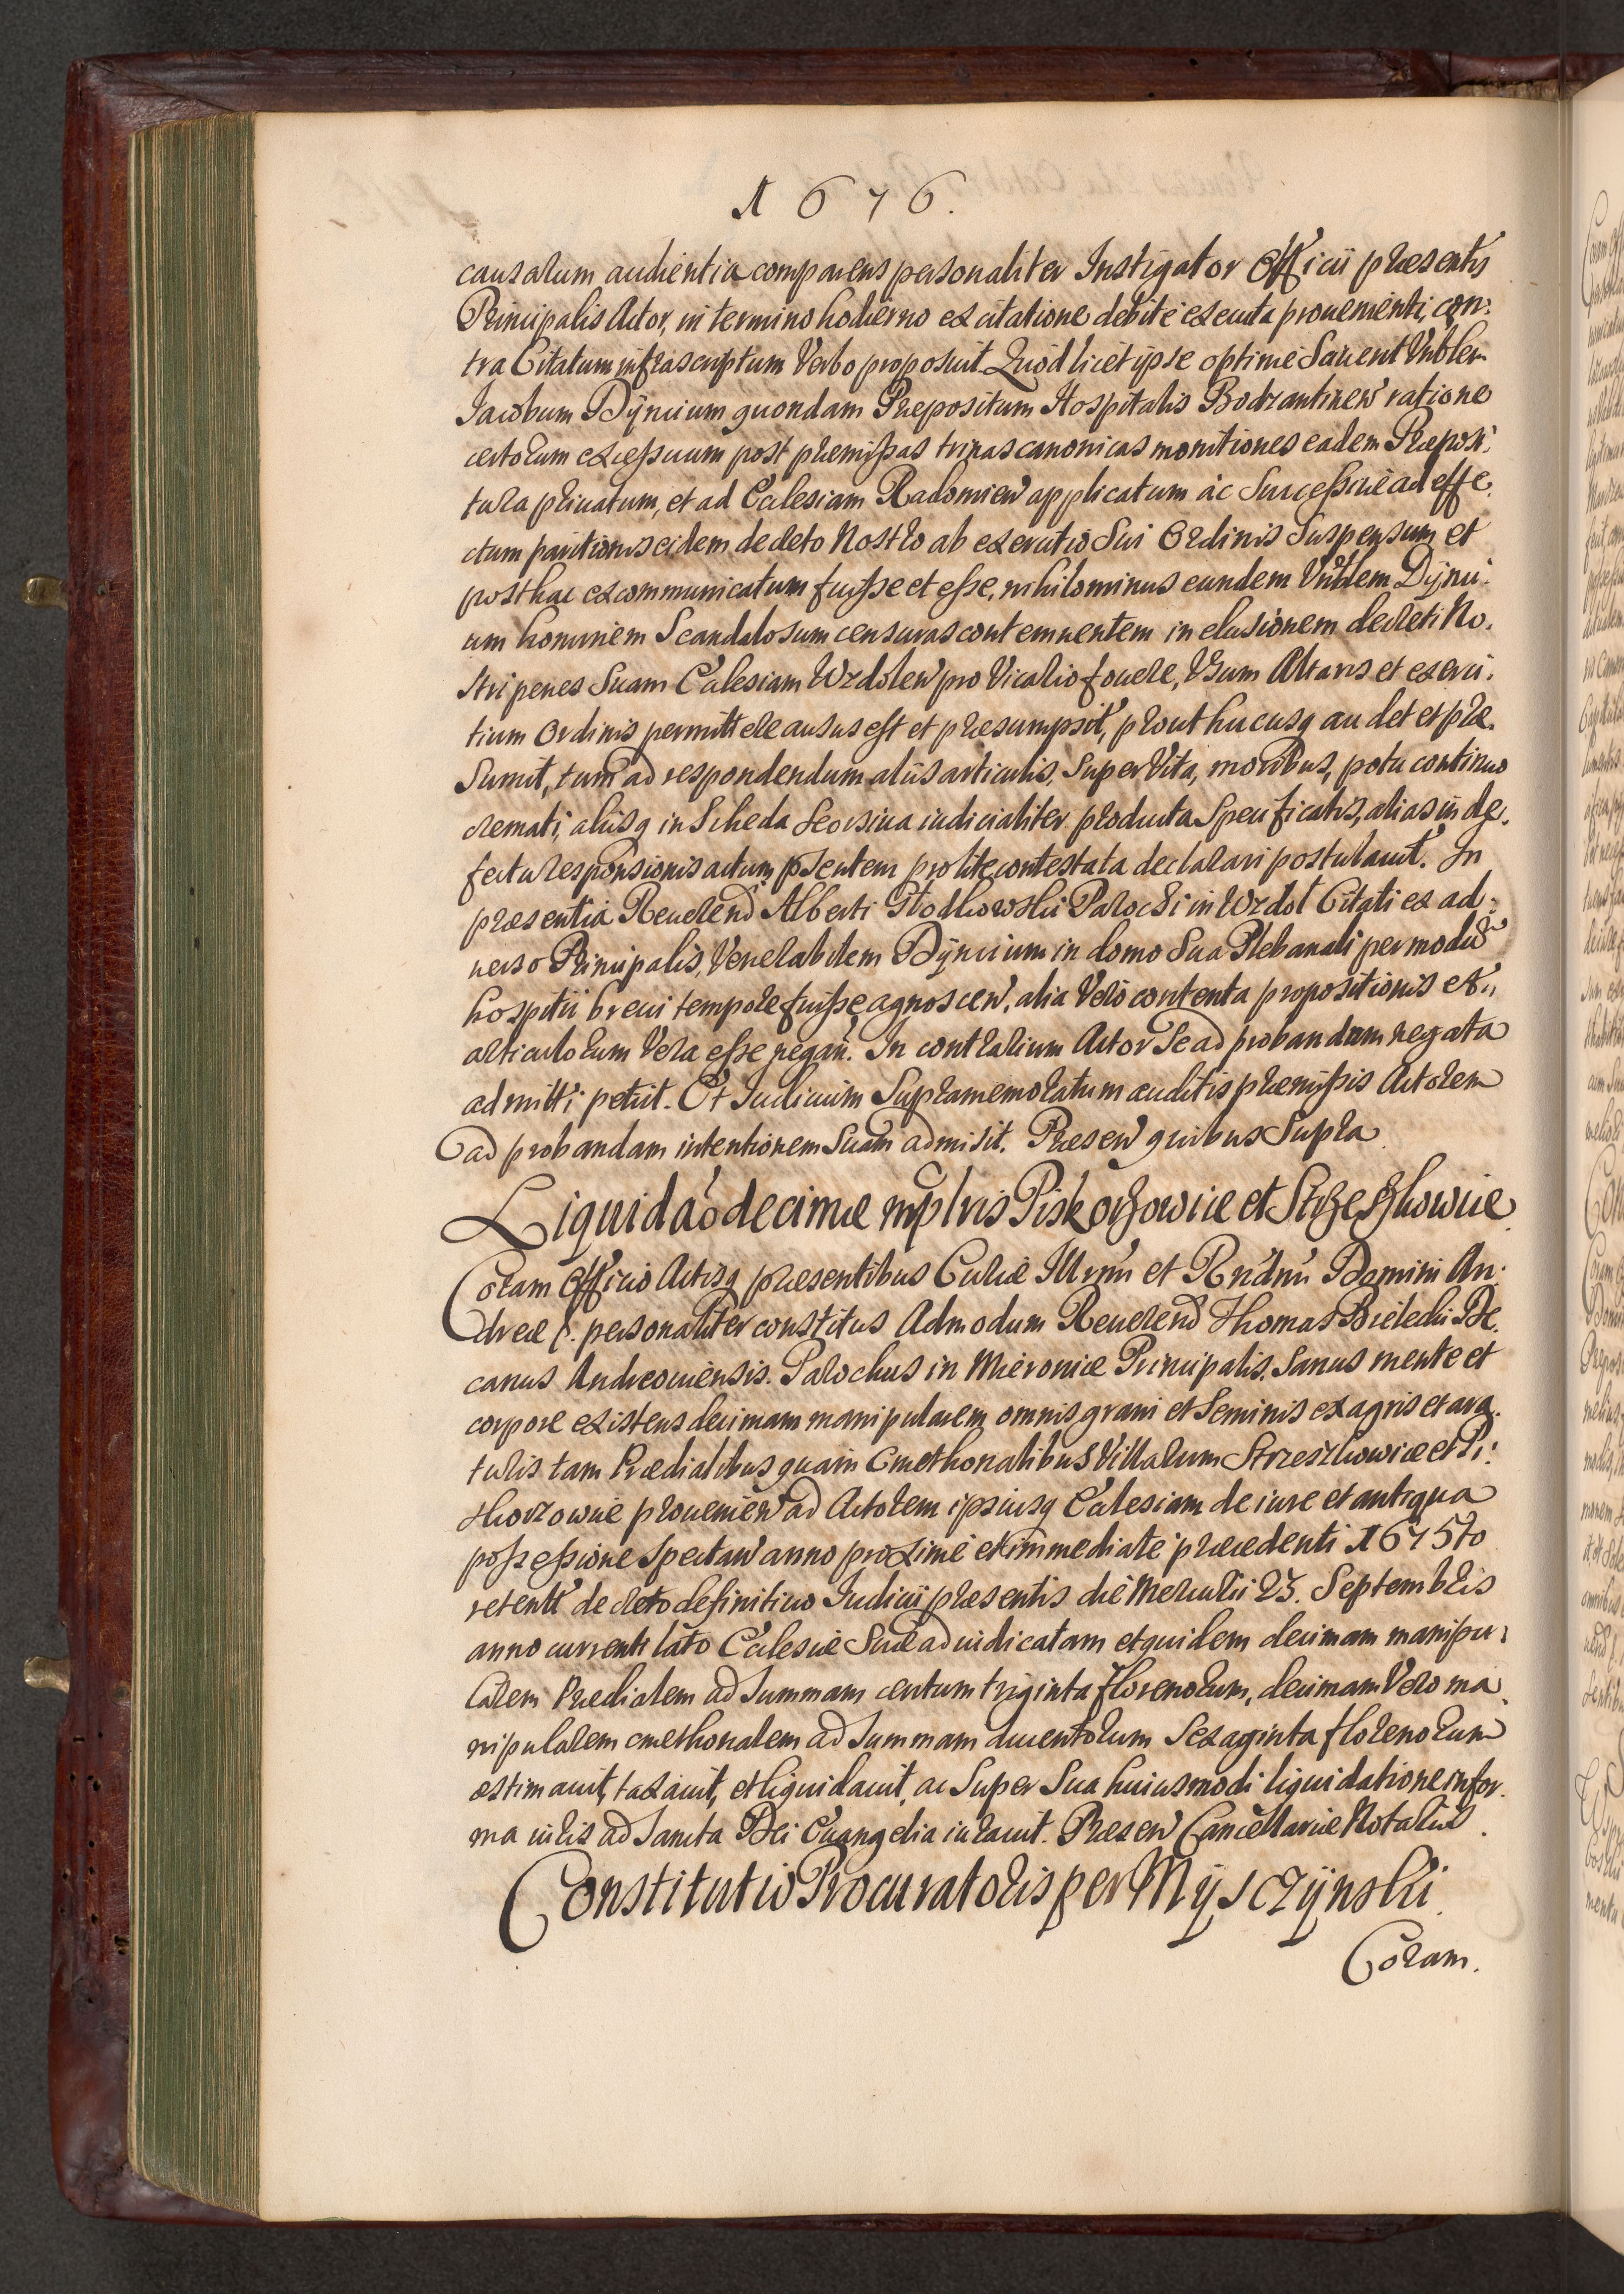 1676.
causarum audientia comparens personaliter Instigator Officii præsentis
Principalis Actor, in termino hodierno ex citatione debite executa proveniénti, con:
tra Citatum infrascriptum Verbo proposuit. Quod licet ipse optime Sciverit Vnblem
Jacobum Dyncium quondam Præpositum Hospitalis Bodzantinen ratione
certorum excessuum post præmissas trinas canonicas monitiones eadem Præposi:
tura privatum, et ad Ecclesiam Radomien applicatum ac Successive ad effe.
ctum paritionis eidem decreto Nostro ab exercitio Sui Ordinis Suspensum et
posthac excommunicatum fuisse et esse, nihilominus eundem Vnblem Dynci:
um hominem Scandalosum censuras contemnentem in elusionem decreti No.
stri penes Suam Ecclesiam Wzdolen pro Vicario fovere, Vsum Altaris et exerci:
tium Ordinis permittere ausus est et præsumpsit, prout hucusq audet et præ.
sumit, tum ad respondendum aliis articulis, Super Vita, moribus, potu continuo
cremati, aliisq in Scheda Seorsiva iudicialiter producta Specificatis, alias in de.
fectu responsionis actum psentem pro lite contestata declarari postulavit. In
præsentia Reverend Alberti Głodkowski Parochi in Wzdoł Citati ex ad:
verso Principalis, Venerabilem Dyncium in domo Sua Plebanali per modū
hospitii brevi tempore fuisse agnoscen, alia Vero contenta propositionis et
articulorum Vera esse negan. In contrarium Actor Se ad probandum negata
admitti petiit. Et Iudicium Supramemoratum auditis præmissis Actorem
ad probandam intentionem Suam admisit. Præsen quibus Supra.
Liquidaō decimæ mplris Piskorzowice et Strzeszkowice
Coram Officio Actisq præsentibus Curiæ Illrmi et Rndmi Domini An:
dreæ p. personaliter constitus Admodum Reverend Thomas Bielecki De.
canus Andreoviensis. Parochus in Mieronice Principalis. Sanus mente et
corpore existens decimam manipularem omnis grani et Seminis ex agris et ara.
turis tam Prædialibus quam Cmethonalibus Villarum Strzeszkowice et Pi:
skorzowice provenien ad Actorem ipsiusq Ecclesiam de iure et antiqua
possessione Spectan anno proxime et immediate præcedenti 1675to
retent decreto definitivo Iudicii præsentis die Mercurii 23. Septembris
anno currenti lato Ecclesiæ Suæ adiudicatam et quidem decimam manipu:
larem Prædialem ad Summam centum triginta florenorum, decimam Vero ma.
nipularem cmethonalem ad Summam ducentorum Sexaginta florenorum
æstimavit, taxavit, et liquidavit, ac Super Sua huiusmodi liquidatione in for.
ma iuris ad Sancta Dei Evangelia iuravit. Præsen Cancellariæ Notariis.
Constitutio Procuratoris per Mysczynski
Coram.